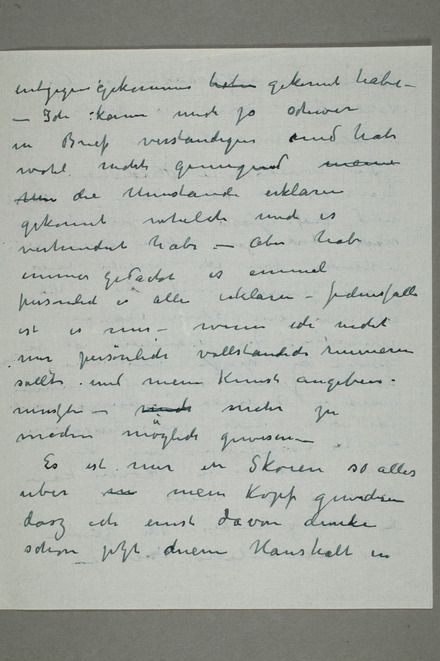 entgegen gekommen habe gekonnt habe –
– Ich kann mich so schwer
in Brief verständigen und hab
wohl nicht genügend meine
die Umstände erklären
gekonnt welche mich es
verhindert habe – Aber habe
immer gedacht es einmal
persönlich is alle erklären – Jedenfalls
ist es mir – wenn ich nicht
nur persönlich vollständich
sollte und mein Kunst angeben
muszte – mich mehr zu
machen möglich gewesen –
Es ist mir ein so alles
über mein Kopf
dasz ich ernst davon denke
schon jetzt Haushalt in